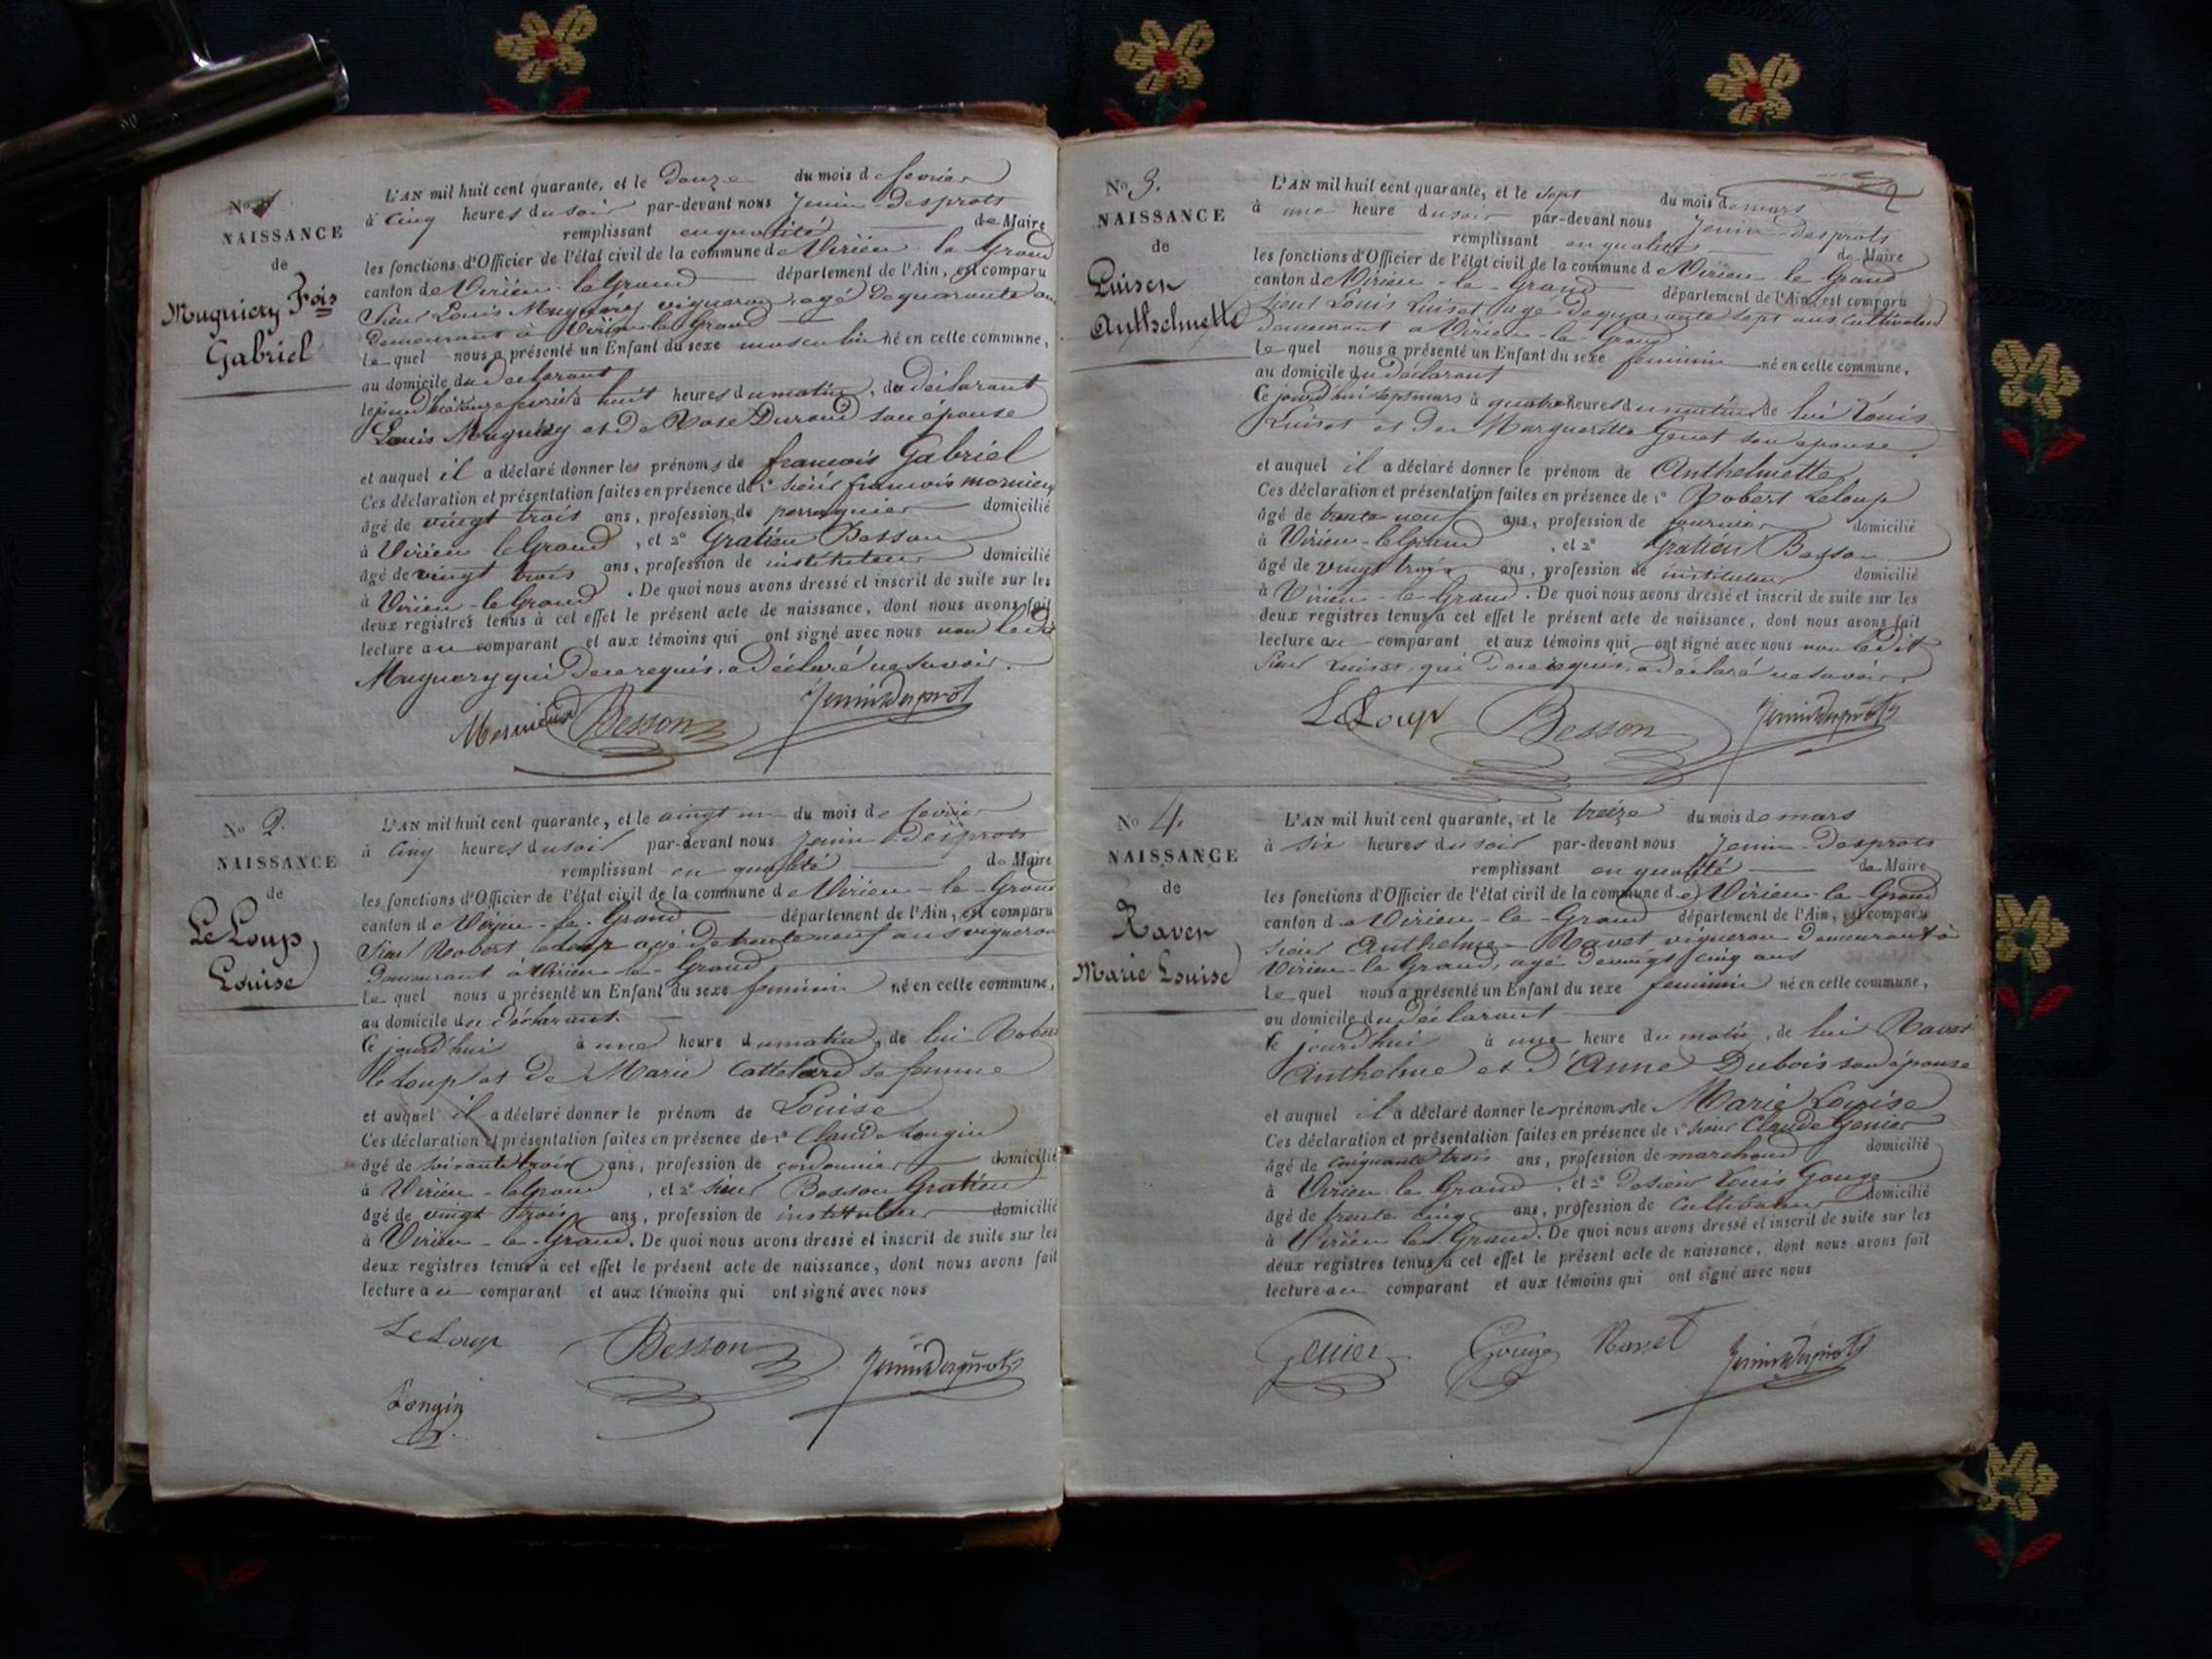 No 1
NAISSANCE
de
Muguiery Fois
Gabriel
L'AN mil huit cent quarante, et le douze du mois de fevrier
à cinq heures du soir par-devant nous Jenin-desprots
remplissant en qualité de Maire
les fonctions d'Officier de l'état civil de la commune de Virieu le Grand
canton de Virieu-le Grand département de l'Ain, est comparu
Sieur Louis Muguiery vigneron, agé de quarante ans
demeurant à Virieu-le Grand
Lequel nous a présenté un Enfant du sexe masculin né en cette commune,
au domicile du déclarant
à huit heures du matin, du déclarant
Louis Muguiery et de Rose Durand son épouse
et auquel il a déclaré donner les prénoms de francois Gabriel
Ces déclaration et présentation faites en présence de 1° Sieur francois mornieux
âgé de vingt trois ans, profession de perruquier domicilié
à Virieu le Grand, et 2° Gratien Besson
âgé de vingt trois ans, profession de instituteur domicilié
à Virieu-le Grand. De quoi nous avons dressé et inscrit de suite sur les
deux registres tenus à cet effet le présent acte de naissance, dont nous avons fait
lecture au comparant et aux témoins qui ont signé avec nous non ledit
Muguery qui de ce requis, a déclaré ne savoir.
Besson Jenindesprots
No 2.
NAISSANCE
de
LeLoup,
Louise
L'AN mil huit cent quarante, et le vingt un du mois de fevrier
à cinq heures du soir par-devant nous Jenin-desprots
remplissant en qualité de Maire
les fonctions d'Officier de l'état civil de la commune de Virieu-le-Grand
canton de Virieu-le-Grand département de l'Ain, est comparu
Sieur Robert Leloup agé de trente neuf ans vigneron
demeurant à Virieu-le-Grand
Lequel nous a présenté un Enfant du sexe feminin né en cette commune,
au domicile du déclarant.
Ce jourd'hui à une heure du matin, de lui Robert
Leloup et de Marie Cattelard sa femme
et auquel il a déclaré donner le prénom de Louise
Ces déclaration et présentation faites en présence de 1° Claude Longin
âgé de soixante trois ans, profession de cordonnier domicilié
à Virieu-le Grand, et 2° Sieur Besson Gratien
âgé de vingt trois ans, profession de instituteur domicilié
à Virieu-le-Grand. De quoi nous avons dressé et inscrit de suite sur les
deux registres tenus à cet effet le présent acte de naissance, dont nous avons fait
lecture au comparant et aux témoins qui ont signé avec nous
LeLoup Besson Jenindesprots
Longin
No 3.
NAISSANCE
de
Luiset
Anthelmette
L'AN mil huit cent quarante, et le sept du mois de mars
à une heure du soir par-devant nous Jenin-desprots
remplissant en qualité de Maire
les fonctions d'Officier de l'état civil de la commune de Virieu-le Grand
canton de Virieu-le-Grand département de l'Ain, est comparu
Sieur Louis Luiset agé de quarante sept ans cultivateur
demeurant a Virieu-le-Grand
Lequel nous a présenté un Enfant du sexe feminin né en cette commune,
au domicile du déclarant
Ce jourd'hui sept mars à quatre heures du matin de lui Louis
Luiset et de Margueritte Genet son epouse
et auquel il a déclaré donner le prénom de Anthelmette
Ces déclaration et présentation faites en présence de 1° Robert Leloup
âgé de trente neuf ans, profession de fournier domicilié
à Virieu-le Grand, et 2° Gratien Besson
âgé de vingt trois ans, profession de instituteur domicilié
à Virieu-le Grand. De quoi nous avons dressé et inscrit de suite sur les
deux registres tenus à cet effet le présent acte de naissance, dont nous avons fait
lecture au comparant et aux témoins qui ont signé avec nous non ledit
Sieur Luiset qui de ce requis, a déclaré ne savoir
LeLoup Besson Jenindesprots
No 4.
NAISSANCE
de
Ravet
Marie Louise
L'AN mil huit cent quarante, et le treize du mois de mars
à six heures du soir par-devant nous Jenin-Desprots
remplissant en qualité de Maire
les fonctions d'Officier de l'état civil de la commune de Virieu-le-Grand
canton de Virieu-le-Grand département de l'Ain, est comparu
Sieur Anthelme Ravet vigneron demeurant à
Virieu-le Grand, agé de vingt cinq ans
Lequel nous a présenté un Enfant du sexe feminin né en cette commune,
au domicile du déclarant
Ce jourd'hui à une heure du matin, de lui Ravet
Anthelme et d'Anne Dubois son épouse
et auquel il a déclaré donner les prénoms de Marie Louise
Ces déclaration et présentation faites en présence de 1° Sieur Claude Genier
âgé de cinquante trois ans, profession de marchand domicilié
à Virieu-le Grand, et 2° de sieur Louis Gouge
âgé de trente cinq ans, profession de cultivateur domicilié
à Virieu le Grand. De quoi nous avons dressé et inscrit de suite sur les
deux registres tenus à cet effet le présent acte de naissance, dont nous avons fait
lecture au comparant et aux témoins qui ont signé avec nous
Genier Gouge Ravet Jenindesprots